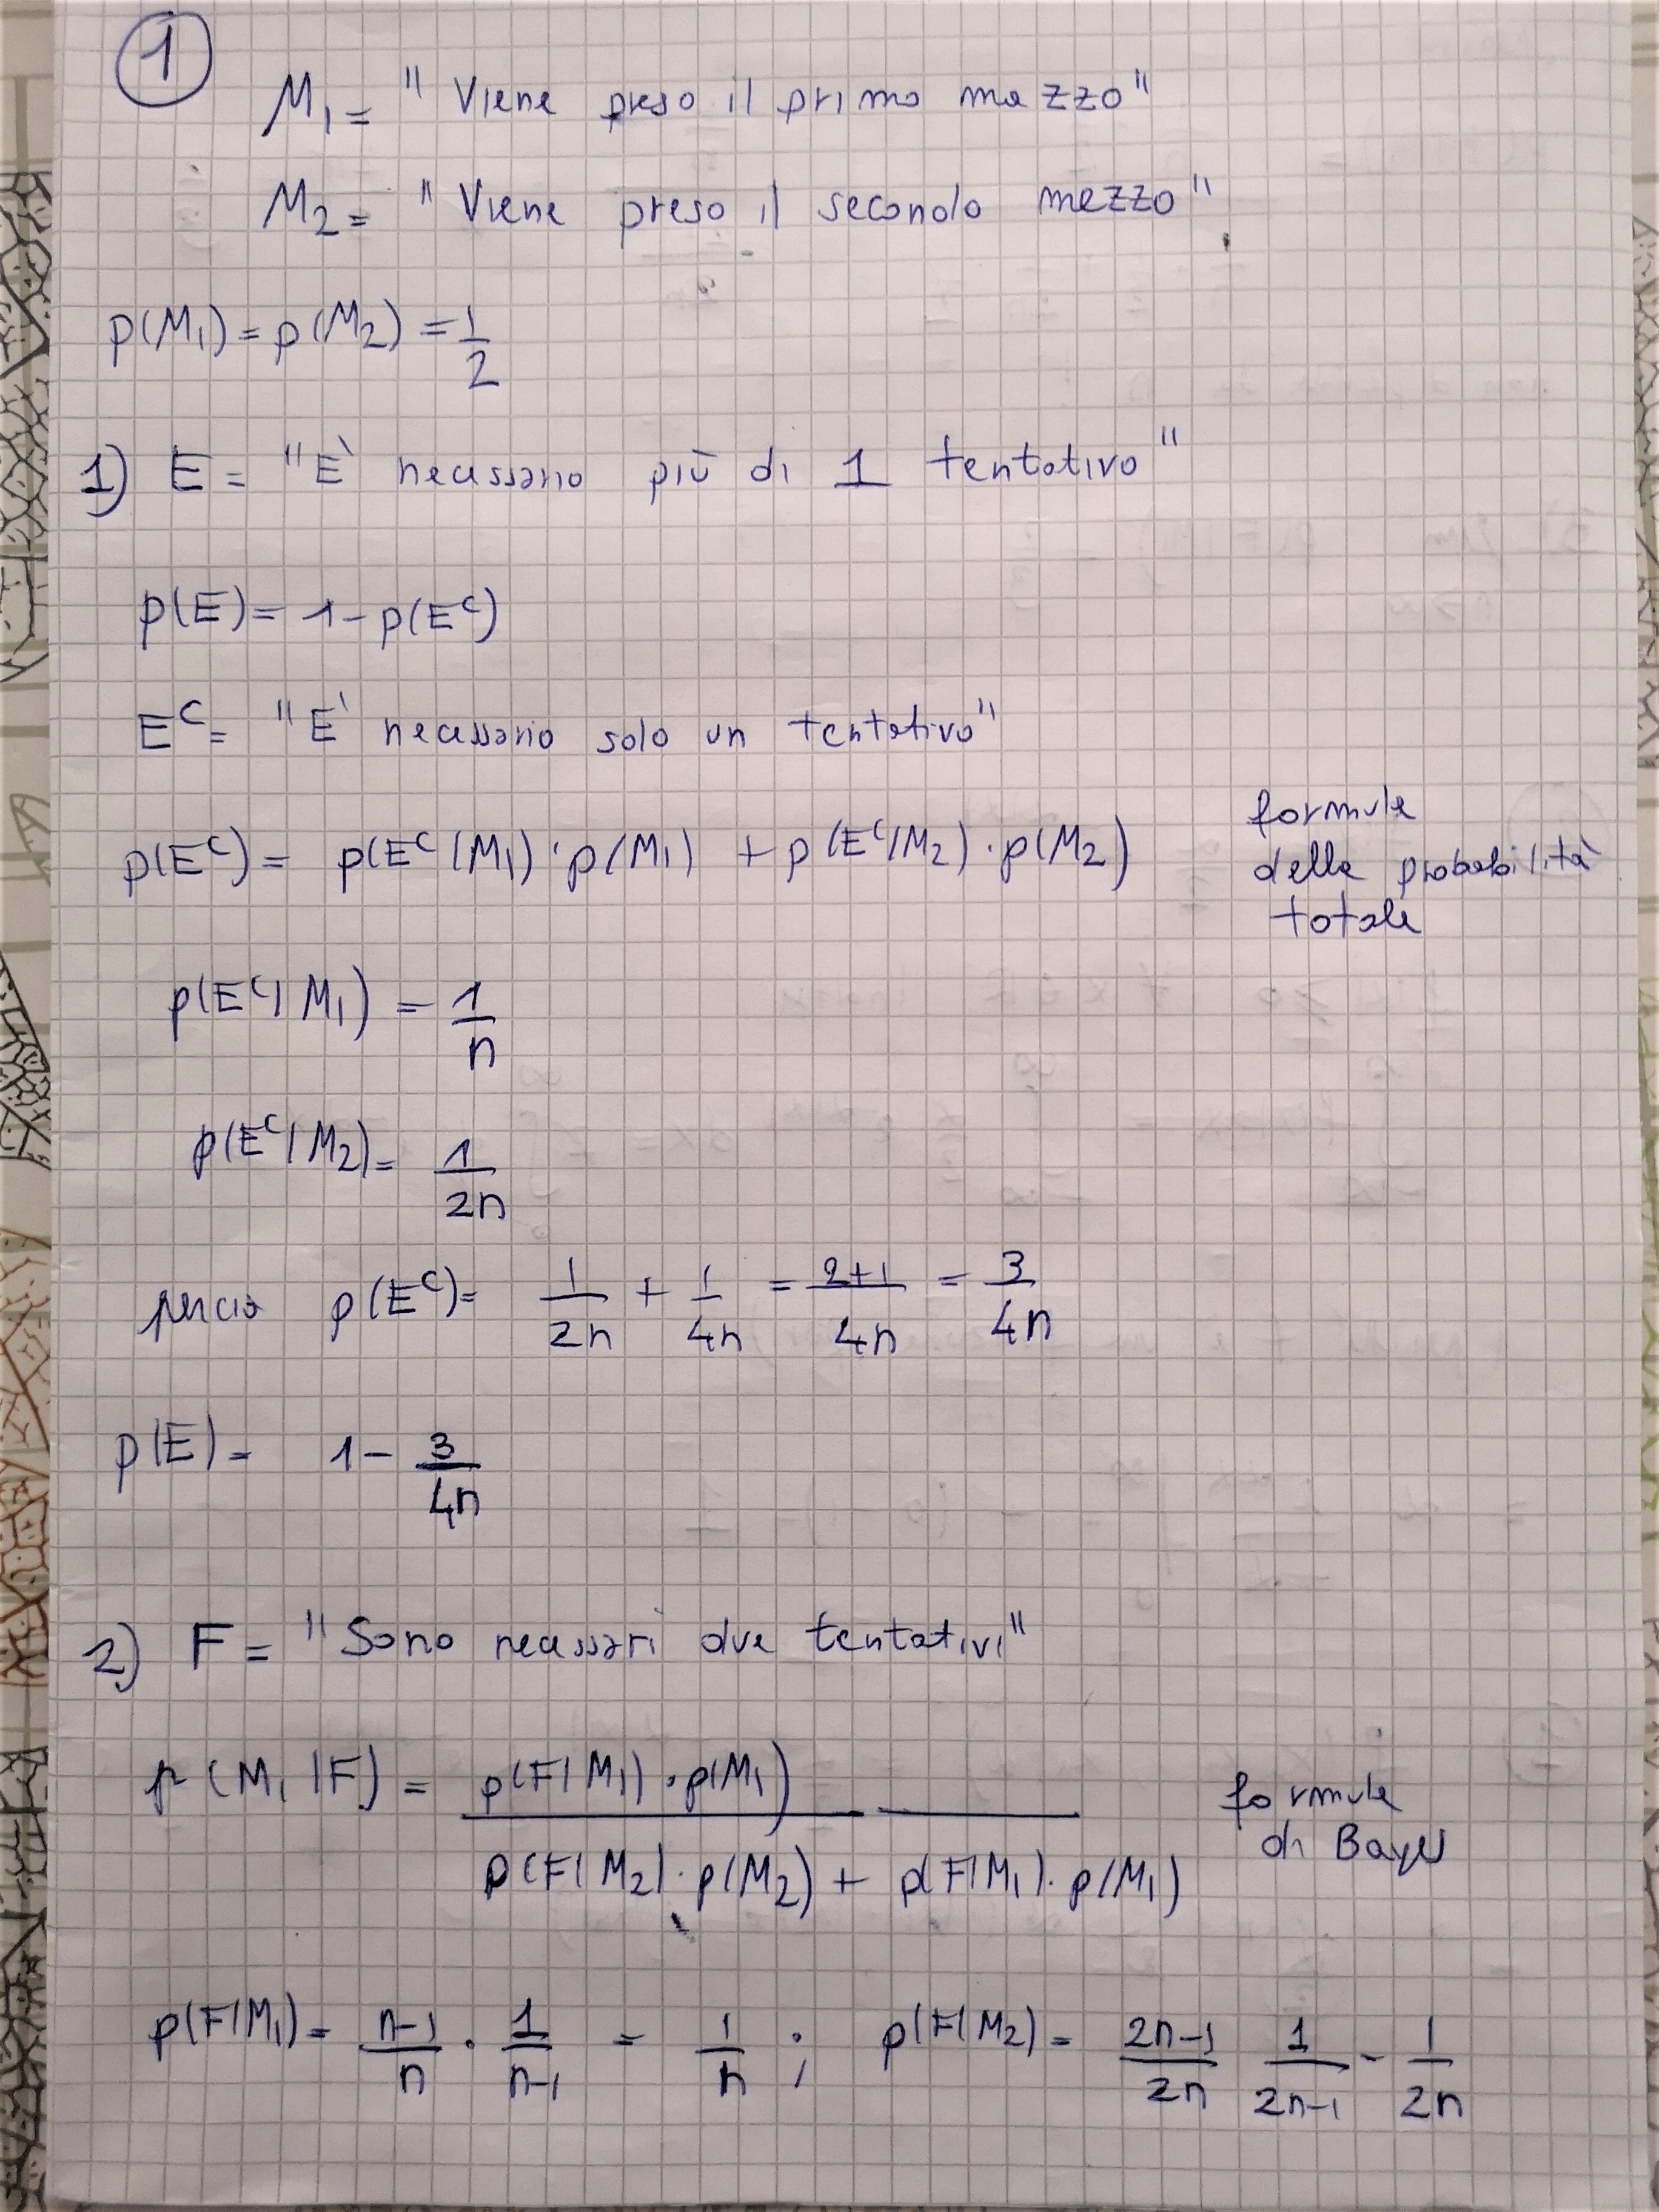 1
M₁ = "Viene preso il primo mazzo"
M₂ = "Viene preso il secondo mezzo"
p(M₁) = p(M₂) = 1/2
1) E = "E' necessario più di 1 tentativo"
p(E) = 1 - p(Eᶜ)
Eᶜ = "E' necessario solo un tentativo"
p(Eᶜ) = p(Eᶜ|M₁) · p(M₁) + p(Eᶜ|M₂) · p(M₂) formula della probabilità totale
p(Eᶜ|M₁) = 1/n
p(Eᶜ|M₂) = 1/2n
perciò p(Eᶜ) = 1/2n + 1/4n = 2+1/4n = 3/4n
p(E) = 1 - 3/4n
2) F = "Sono necessari due tentativi"
p(M₁|F) = p(F|M₁) · p(M₁) / p(F|M₂) · p(M₂) + p(F|M₁) · p(M₁) formula di Bayes
p(F|M₁) = n-1/n · 1/n-1 = 1/n ; p(F|M₂) = 2n-1/2n 1/2n-1 - 1/2n